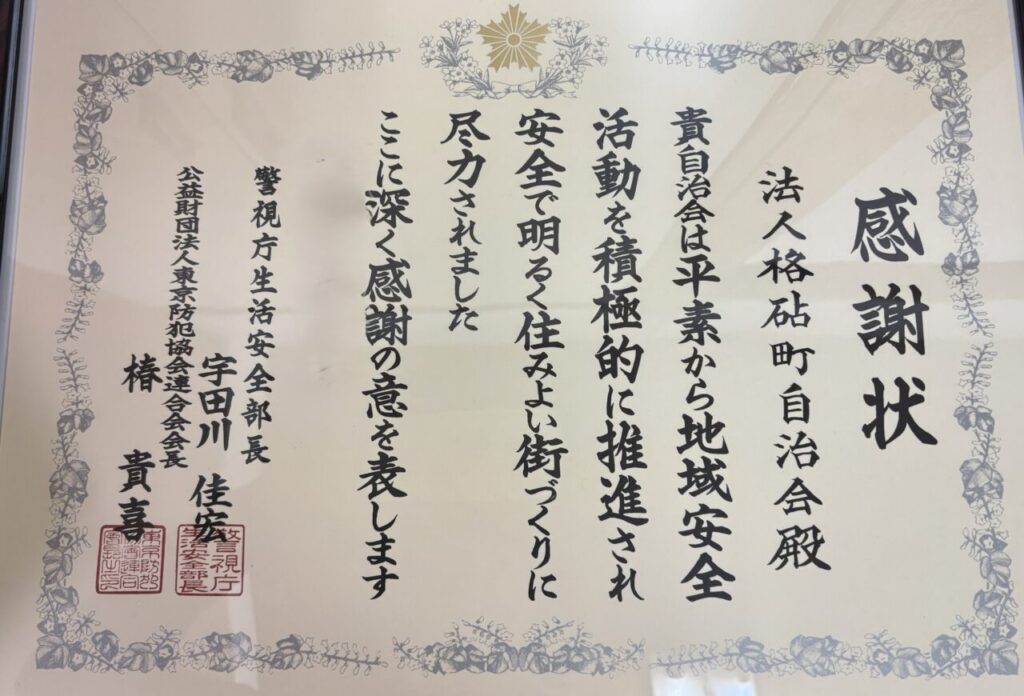 感謝状
法人格砧町自治会殿
貴自治会は平素から地域安全
活動を積極的に推進され
安全で明るく住みよい街づくりに
尽力されました
ここに深く感謝の意を表します
警視庁生活安全部長
宇田川 佳宏
警視庁生活安全部長
公益財団法人東京防犯協会連合会会長
椿 貴喜